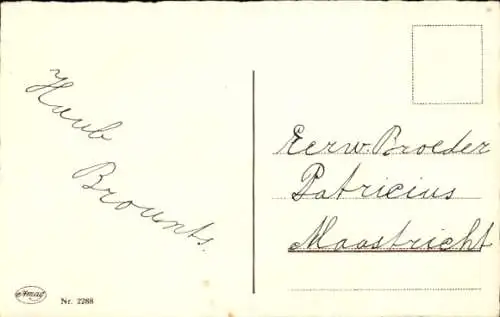 Haub
Brounts.
Eerw. Broeder
Patricius
Maastricht
Amag
Nr. 2288